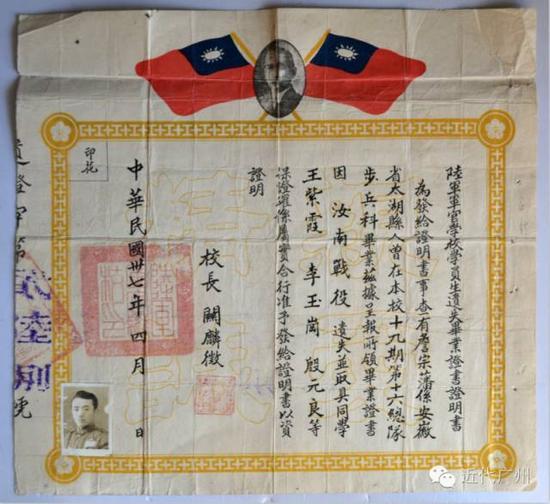 陸軍軍官學校學員生遺失畢業證書證明書
為發給證明書事查有詹宗藩係安徽
省太湖縣人曾在本校十九期第十六總隊
步兵科畢業茲據呈報所領畢業證書
因汝南戰役遺失並取具同學
王紫霞 李玉崗 殷元良等
保證確係屬實合行准予發給證明書以資
證明
校長 關麟徵
中華民國卅七年四月 日
印花
近代广州